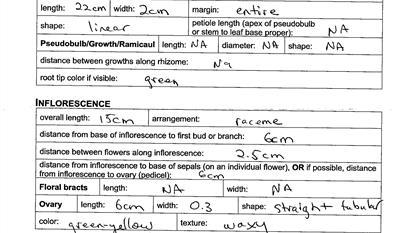 length: 22cm width: 2cm margin: entire
shape: linear petiole length (apex of pseudobulb or stem to leaf base proper): NA
Pseudobulb/Growth/Ramicaul length: NA diameter: NA shape: NA
distance between growths along rhizome: Na
root tip color if visible: green
INFLORESCENCE
overall length: 15cm arrangement: raceme
distance from base of inflorescence to first bud or branch: 6cm
distance between flowers along inflorescence: 2.5cm
distance from inflorescence to base of sepals (on an individual flower), OR if possible, distance
from inflorescence to ovary (pedicel): 6cm
Floral bracts length: NA width: NA
Ovary length: 6cm width: 0.3 shape: straight tubular
color: green-yellow texture: waxy